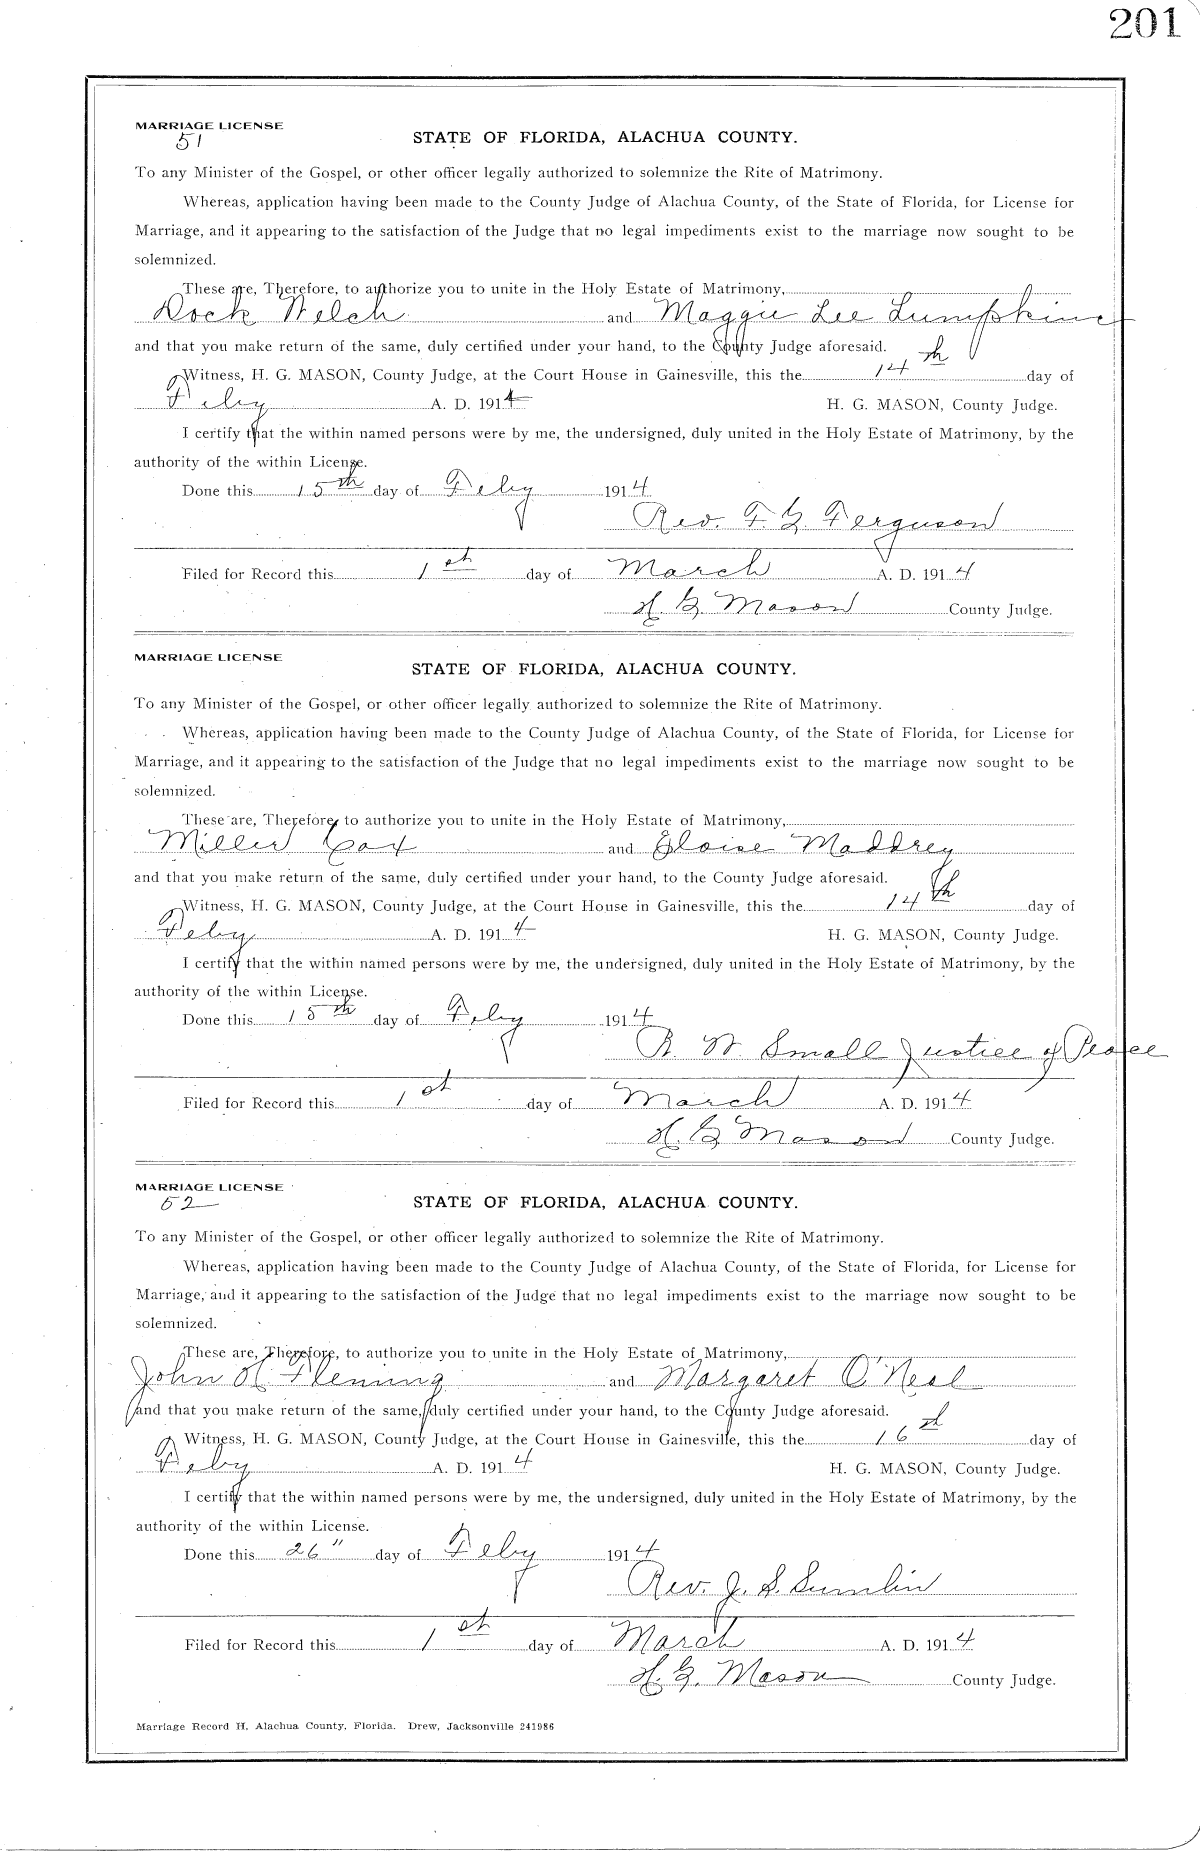 201
MARRIAGE LICENSE
51
STATE OF FLORIDA, ALACHUA COUNTY.
To any Minister of the Gospel, or other officer legally authorized to solemnize the Rite of Matrimony.
Whereas, application having been made to the County Judge of Alachua County, of the State of Florida, for License for
Marriage, and it appearing to the satisfaction of the Judge that no legal impediments exist to the marriage now sought to be
solemnized.
These are, Therefore, to authorize you to unite in the Holy Estate of Matrimony,
Dock Welch and Maggie Lee Lumpkins
and that you make return of the same, duly certified under your hand, to the County Judge aforesaid.
Witness, H. G. MASON, County Judge, at the Court House in Gainesville, this the 14th day of
Feby A. D. 1914 H. G. MASON, County Judge.
I certify that the within named persons were by me, the undersigned, duly united in the Holy Estate of Matrimony, by the
authority of the within License.
Done this 15th day of Feby 1914
Rev. F. G. Ferguson
Filed for Record this 1st day of March A. D. 1914
H. G. Mason County Judge.
MARRIAGE LICENSE
STATE OF FLORIDA, ALACHUA COUNTY.
To any Minister of the Gospel, or other officer legally authorized to solemnize the Rite of Matrimony.
Whereas, application having been made to the County Judge of Alachua County, of the State of Florida, for License for
Marriage, and it appearing to the satisfaction of the Judge that no legal impediments exist to the marriage now sought to be
solemnized.
These are, Therefore, to authorize you to unite in the Holy Estate of Matrimony,
Miller Cox and Eloise Maddrey
and that you make return of the same, duly certified under your hand, to the County Judge aforesaid.
Witness, H. G. MASON, County Judge, at the Court House in Gainesville, this the 14th day of
Feby A. D. 1914 H. G. MASON, County Judge.
I certify that the within named persons were by me, the undersigned, duly united in the Holy Estate of Matrimony, by the
authority of the within License.
Done this 15th day of Feby 1914
R. W. Small Justice of Peace
Filed for Record this 1st day of March A. D. 1914
H. G. Mason County Judge.
MARRIAGE LICENSE
52
STATE OF FLORIDA, ALACHUA COUNTY.
To any Minister of the Gospel, or other officer legally authorized to solemnize the Rite of Matrimony.
Whereas, application having been made to the County Judge of Alachua County, of the State of Florida, for License for
Marriage, and it appearing to the satisfaction of the Judge that no legal impediments exist to the marriage now sought to be
solemnized.
These are, Therefore, to authorize you to unite in the Holy Estate of Matrimony,
John H Fleming and Margaret O'Neal
and that you make return of the same, duly certified under your hand, to the County Judge aforesaid.
Witness, H. G. MASON, County Judge, at the Court House in Gainesville, this the 16th day of
Feby A. D. 1914 H. G. MASON, County Judge.
I certify that the within named persons were by me, the undersigned, duly united in the Holy Estate of Matrimony, by the
authority of the within License.
Done this 26" day of Feby 1914
Rev. J. S. Sumlin
Filed for Record this 1st day of March A. D. 1914
H. G. Mason County Judge.
Marriage Record H, Alachua County, Florida. Drew, Jacksonville 241986